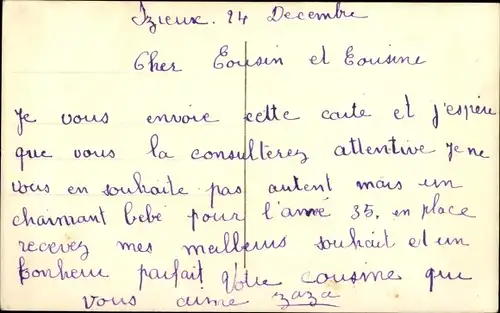 Izieux. 24 Decembre
Cher Cousin et Cousine
Je vous envoie cette carte et j'espère
que vous la consulterez attentive Je ne
vous en souhaite pas autent mais un
chaimant bebé pour l'anné 35. en place
recevez mes meilleurs souhait et un
bonheur parfait Votre cousine que
vous aime zaza